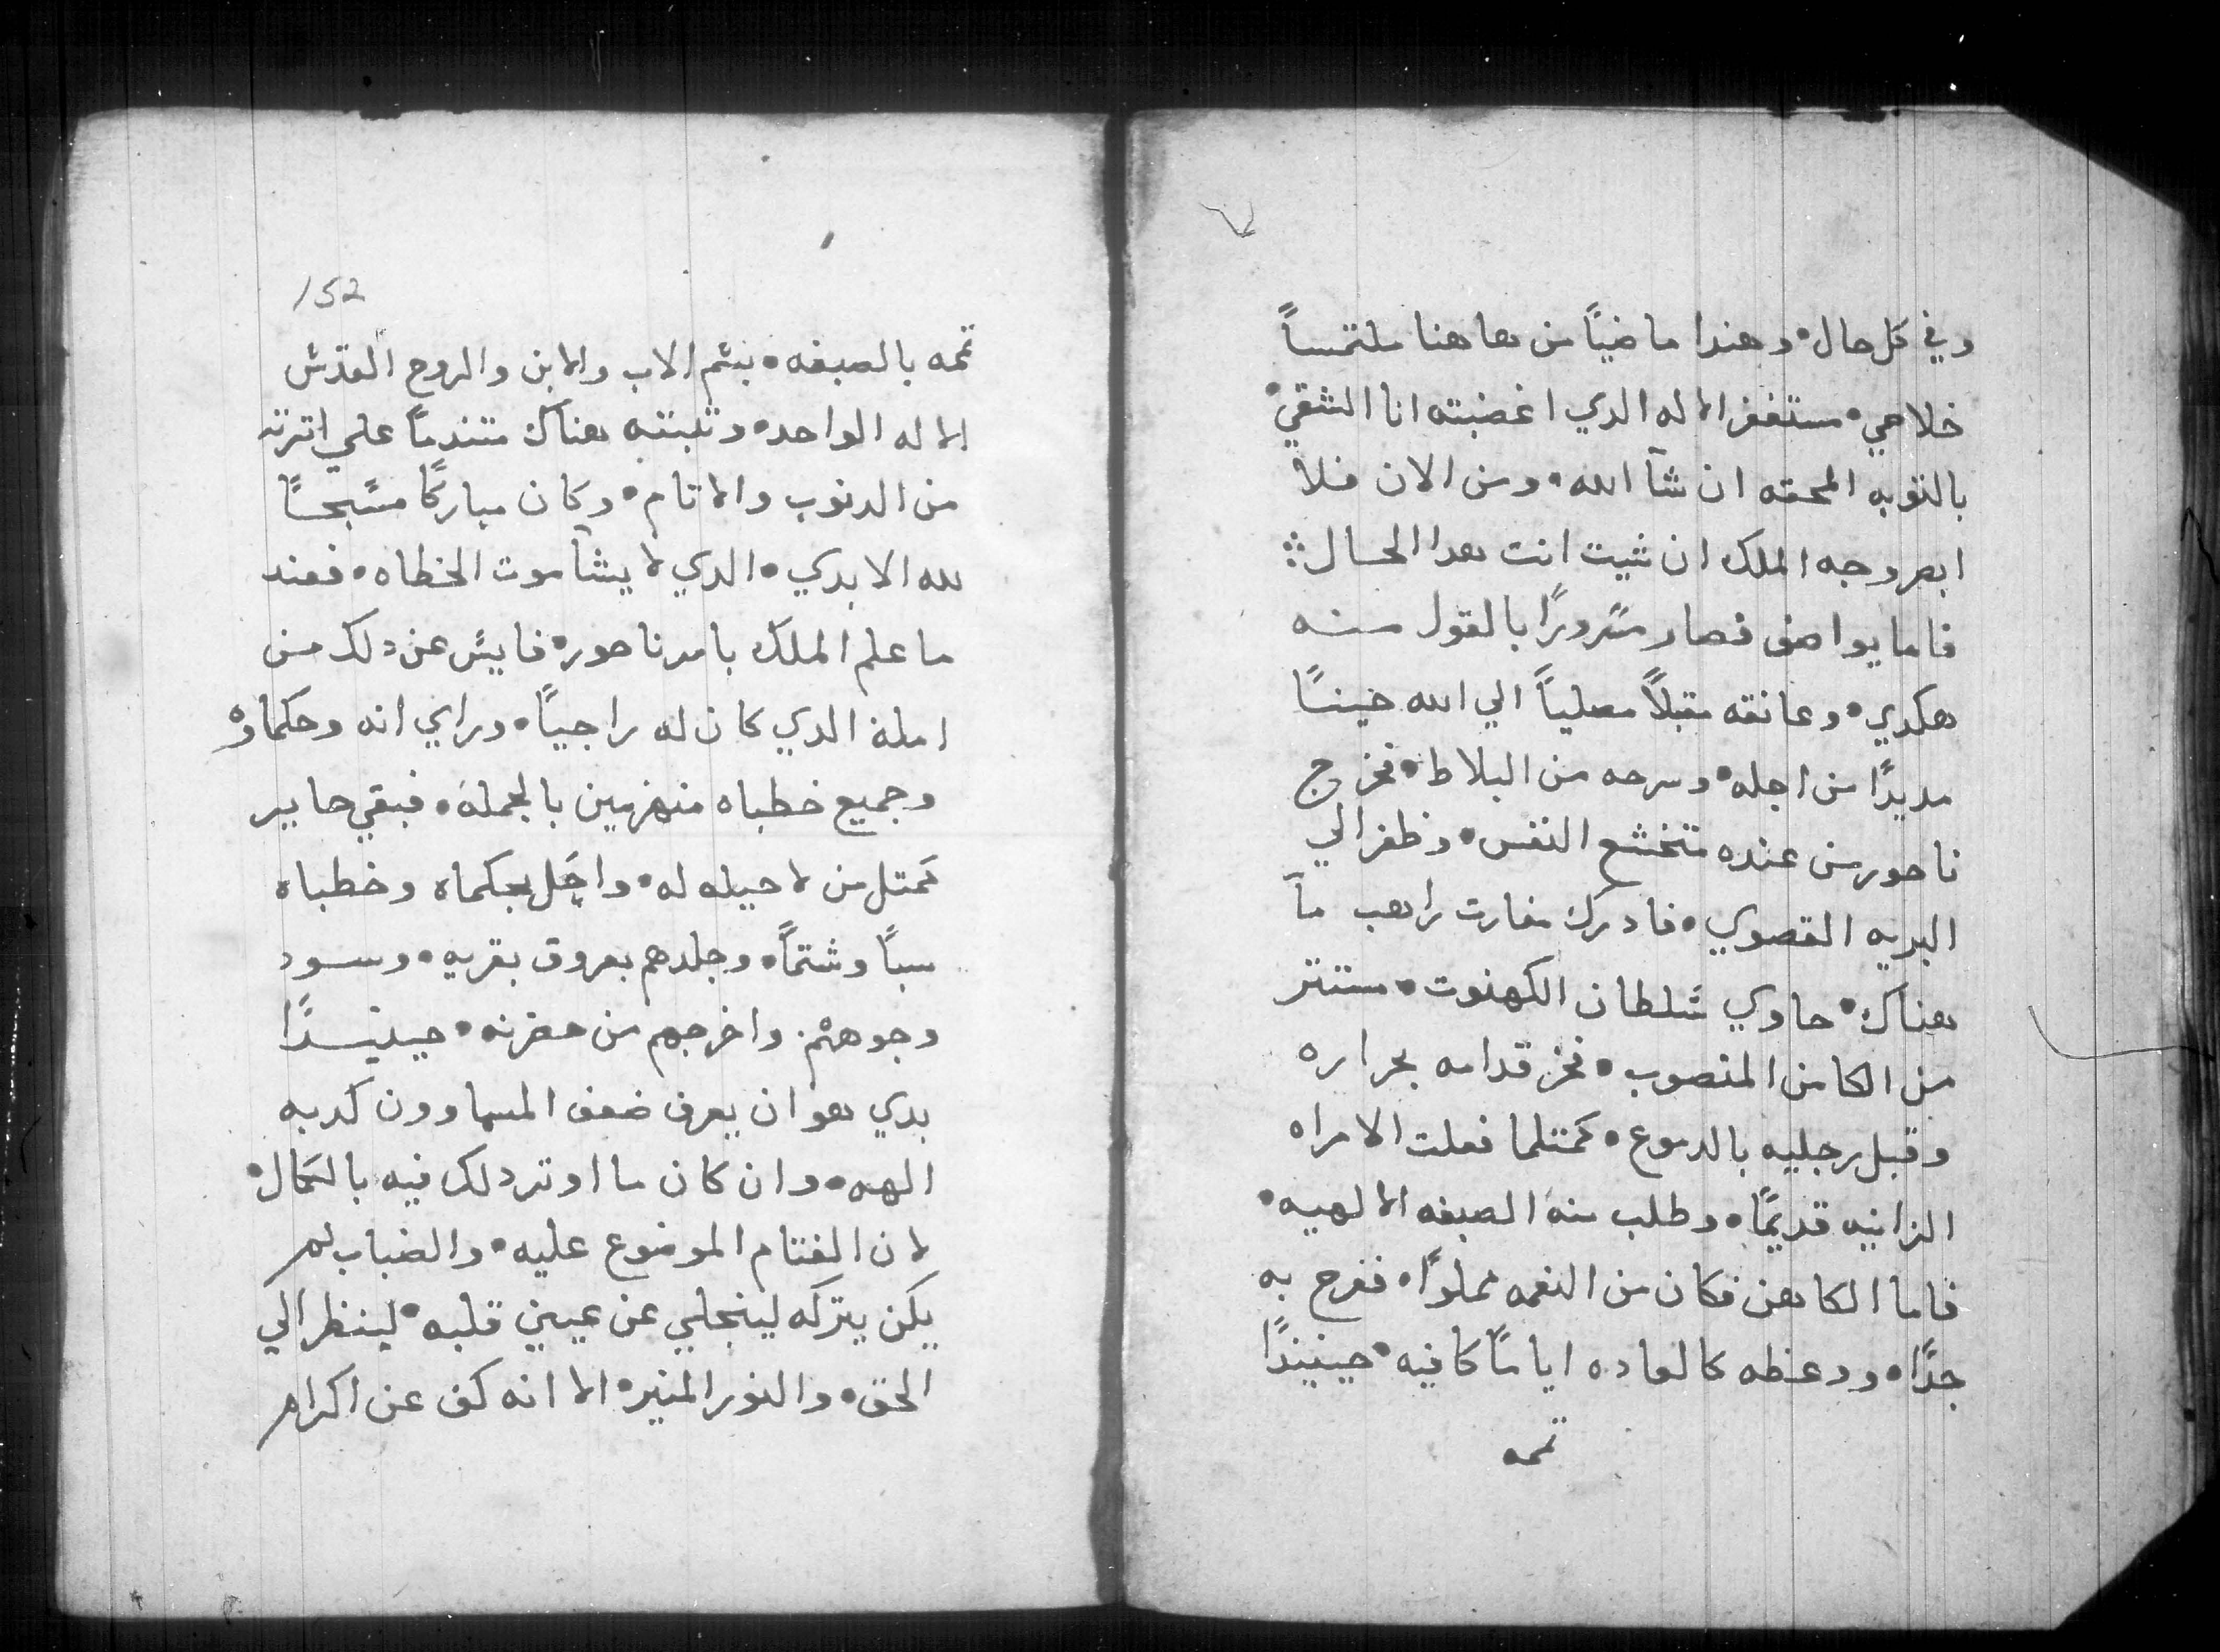 وفي كل حال• وهندا ماضيًا من هاهنا ملتمساً
خلاصي• مستغفر الاله الدي اغضبته انا الشقي•
بالتوبه المحقه ان شآ الله• ومن الان فلا
ابصر وجه الملك ان شيت انت هدا الحال܀
فاما يواصف فصار مسرورًا بالقول منه
هكدي• وعانقه مقبلاً مصلياً الي الله حينًا
مديدًا من اجله• وسرحه من البلاط• فخرج
ناحور من عنده متخشع النفس• وظفر الي
البريه القصوي• فادرك مغارت راهب مآ
هناك• حاوي سلطان الكهنوت• مستتر
من الكامن المنصوب• فخر قدامه بحراره
وقبل رجليه بالدموع• كمتلما فعلت الامراه
الزانيه قديمًا• وطلب منه الصبغه الالهيه•
فاما الكاهن فكان من النعمه مملوًا• ففرح به
جدًا• ووعظه كالعاده ايامًا كافيه• حينيندًا
تممه
152
تممه بالصبغه• بسم الاب والابن والروح القدس
الاله الواحد• وتبته هناك متندماً علي اترته
من الدنوب والاتام• وكان مباركًا مسبحًا
لله الابدي• الدي لا يشآ موت الخطاه• فعند
ما علم الملك بامر ناحور• فايس عن دلك من
امله الدي كان له راجياً• وراي انه وحكماوه
وجميع خطباه منهزمين بالجمله• فبقي حاير
كمتل من لا حيله له• واجل بحكماه وخطباه
سباً وشتماً• وجلدهم بعروق بقريه• وسود
وجوههم• واخرجهم من حضرته• حينيدًا
بدي هو ان يعرف ضعف المسماوون كدبه
الهه• وان كان ما اوتر دلك فيه بالكمال•
لان الغتام الموضوع عليه• والضباب لم
يكن يتركه لينجلي عن عيني قلبه• لينظر الي
الحق• والنور المنير• الا انه كف عن اكرام